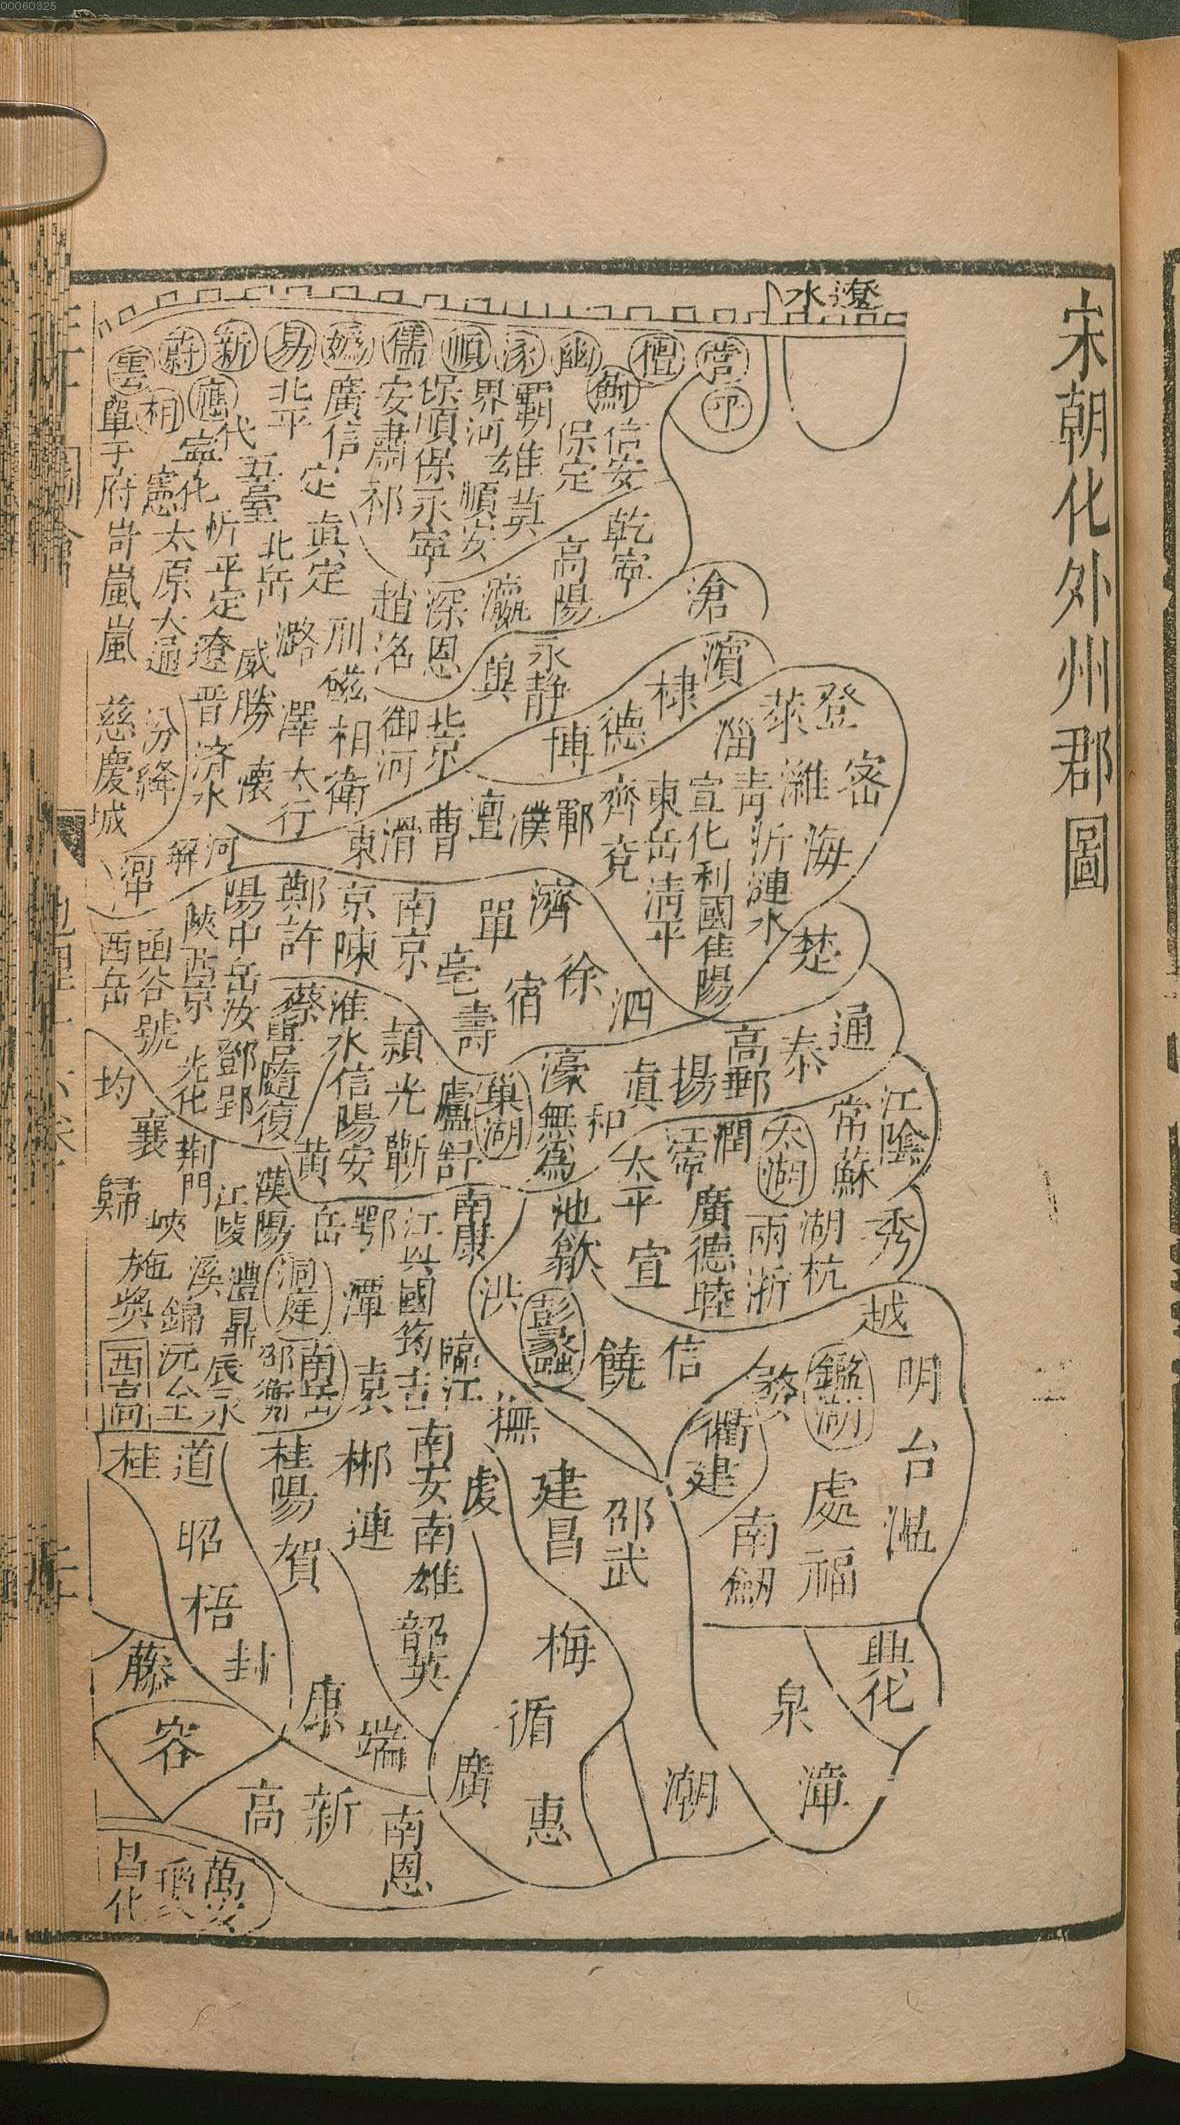 00060325
宋朝化外州郡圖
遼水
營
平
檀
幽
薊
涿
順
儒
媯
易
新
蔚
雲
應
單于府
代
北平
廣信
安肅
保順
界河
霸
保定
信安
雄
莫
順安
保
永寧
祁
定
真定
五臺
北岳
寧化
憲
忻
太原
平定
遼
大通
岢嵐
嵐
乾寧
高陽
瀛
深
恩
趙
洺
邢
磁
潞
威勝
晉
澤
相
御河
北京
永靜
滄
濱
棣
德
博
衛
太行
懷
濟水
汾
絳
慈
慶城
解
河
東
滑
曹
澶
濮
鄆
齊
兗
東岳
清平
宣化
利國
淄
青
萊
登
濰
密
沂
海
漣水
楚
陽
中岳
汝
鄭
許
京
陳
南京
亳
單
濟
徐
宿
泗
壽
陝
西京
函谷
虢
西岳
均
光化
鄧
郢
蔡
隨
復
淮水
信陽
安
潁
光
蘄
黃
廬
舒
巢湖
濠
無為
和
真
揚
高郵
泰
通
江陰
常
蘇
太湖
潤
太平
襄
荆門
歸
峽
江陵
漢陽
岳
鄂
南康
池
歙
宣
廣德
睦
兩浙
湖
杭
秀
越
明
台
溫
鑑湖
處
福
施
溪
錦
沅
全
澧
鼎
辰
永
洞庭
邵
衡
南岳
潭
筠
吉
袁
臨江
洪
彭蠡
饒
信
撫
婺
衢
建
南劒
建昌
邵武
西高
桂
道
昭
梧
封
藤
容
桂陽
賀
郴
連
南安
南雄
韶
英
康
端
梅
循
惠
廣
潮
泉
漳
興化
高
新
南恩
昌化
瓊
萬安